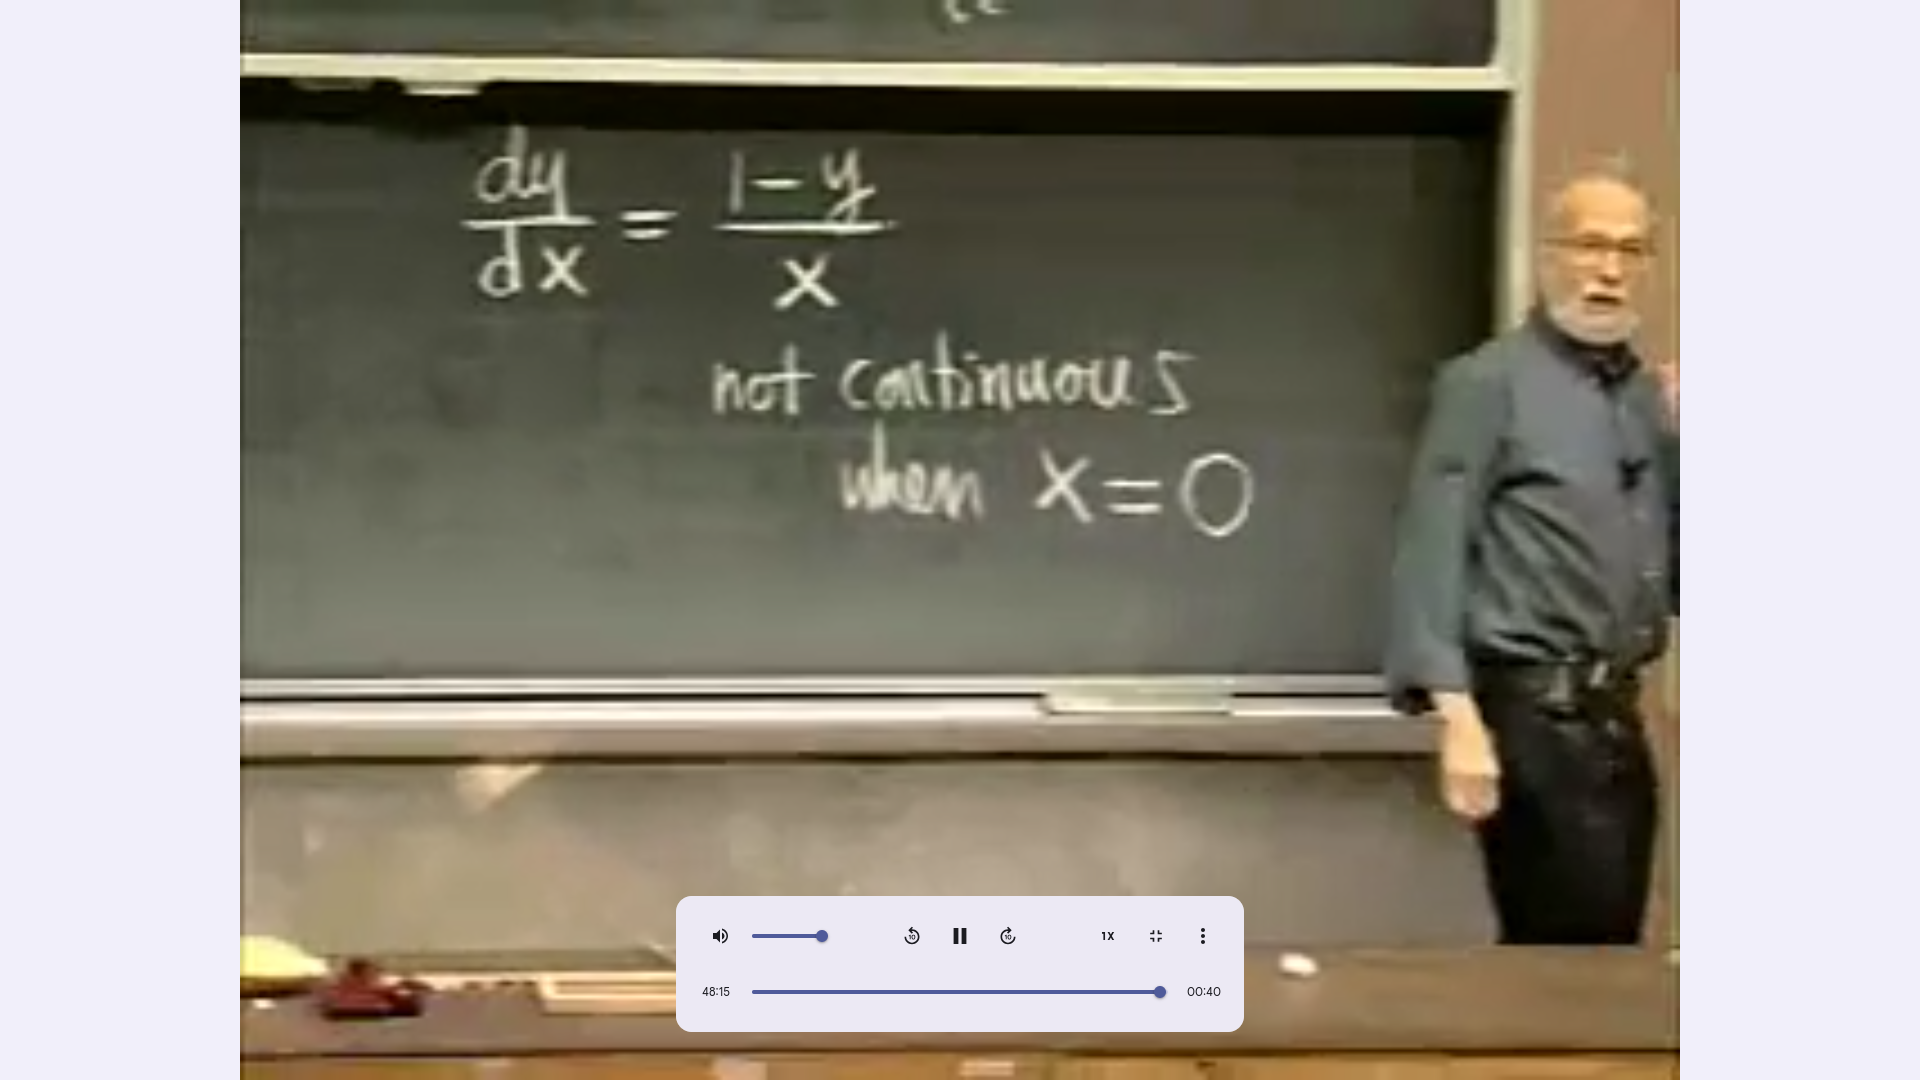 dy/dx = 1-y/x
not continuous
when x=0
10
10
1X
48:15
00:40